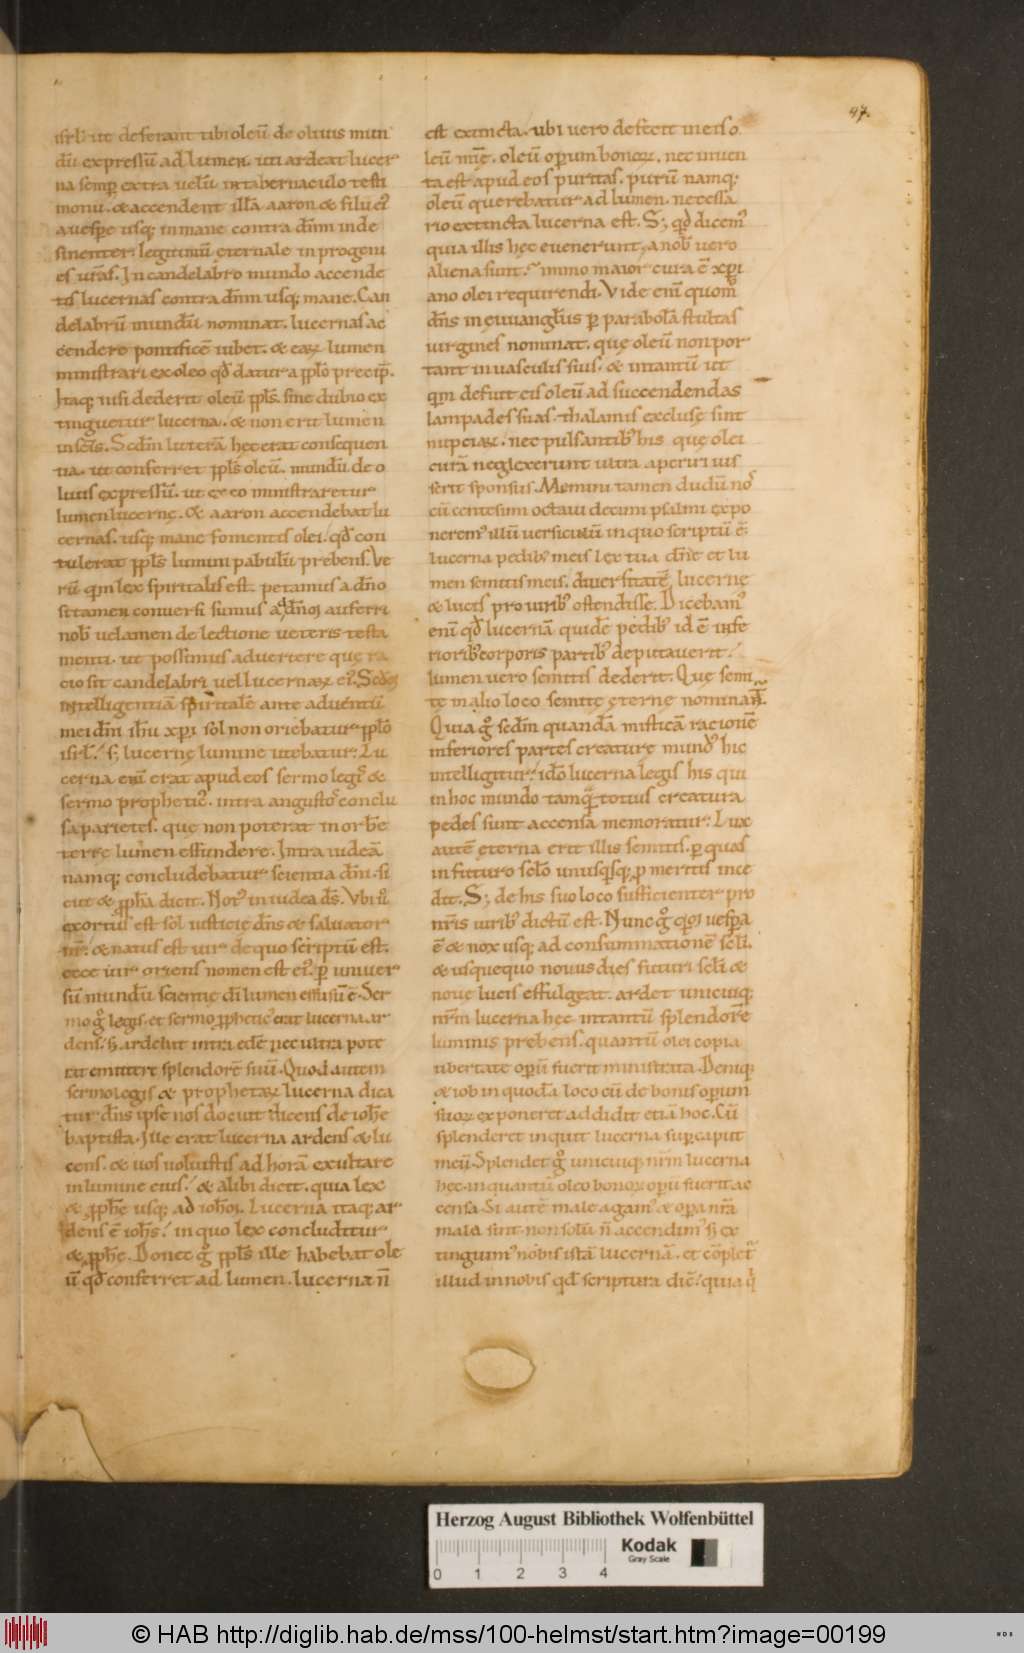 97.
isrł ut deferant tibi oleū de oliuis mun
dū expressū ad lumen. uti ardeat lucer
na semꝑ extra uelū in tabernaculo testi
monii. & accendent illā aaron & filii ei᾿
a uespe usq; in mane contra dn̄m inde
sinenter. legitimū ęternale in progeni
es ur̄as. In candelabro mundo accende
tis lucernas contra dn̄m usq; mane. Can
delabrū mundū nominat. lucernas ac
cendere pontificē iubet. & eaꝝ lumen
ministrari ex oleo qđ datur a ppl̄o precip̄.
Itaq; nisi dederit oleū ppl̄s. sine dubio ex
tinguetur lucerna. & non erit lumen
in sc̄is. Scdm̄ litterā hęc erat consequen
tia. ut conferret ppl̄s oleū. mundū de o
liuis expressū. ut ex eo ministraretur
lumen lucernę. & aaron accendebat lu
cernas. usq; mane fomentis olei. qđ con
tulerat ppl̄s lumini pabulū prebens. Ve
rū qm̄ lex spiritalis est. petamus a dn̄o
si tamen conuersi sumus ad dn̄m auferri
nob̄ uelamen de lectione ueteris testa
menti. ut possimus aduertere quę ra
cio sit candelabri uel lucernaꝝ ei᾿. Scdm̄
intelligentiā spiritalē ante aduentū
mei dn̄i ih̄u xp̄i sol non oriebatur ppl̄o
isrł. s; lucernę lumine utebatur. Lu
cerna enī erat apud eos sermo legis &
sermo prophetic᾿. intra angustos conclu
sa parietes. que non poterat in orbē
terrę lumen effundere. Intra iudeā
namq; concludebatur scientia dn̄i. si
cut & ppħa dicit. Not᾿ in iudea ds̄. Vbi ū
exortus est sol iusticię dn̄s & saluator
nr̄. & natus est uir de quo scriptū est.
ecce uir oriens nomen est ei᾿. ꝑ uniuer
sū mundū scientię dī lumen effusū ē. Ser
mo gͦ legis. et sermo ppħetic᾿ erat lucerna ar
dens. ħ ardebat intra edē nec ultra pote
rat emittere splendorē suū. Quod autem
sermo legis & prophetaꝝ lucerna dica
tur. dn̄s ipse nos docuit dicens de ioħe
baptista. Ille erat lucerna ardens & lu
cens. & uos uoluistis ad horā exultare
in lumine eius. & alibi dicit. quia lex
& ppħę usq; ad ioħem. Lucerna itaq; ar
dens ē ioħs. in quo lex concluditur
& ppħę. Donec gͦ ppl̄s ille habebat ole
ū qđ conferret ad lumen. lucerna n̄
est extincta. ubi uero defecit in eis o
leū mię̄. oleū operum bonoꝝ. nec inuen
ta est apud eos puritas. purū namq;
oleū querebatur ad lumen. necessa
rio extincta lucerna est. S; qđ dicem᾿
quia illis hęc euenerunt, a nob̄ uero
aliena sunt. Immo maior cura ē xp̄i
ano olei requirendi. Vide enī quom̄
dn̄s in euuangl̄iis ꝑ parabolā stultas
uirgines nominat. quę oleū non por
tant in uasculis suis. & in tantū ut
qm̄ defuit eis oleū ad succendendas
lampades suas. thalamis exclusę sint
nupciaꝝ. nec pulsantib᾿ his quę olei
curā neglexerunt ultra aperiri ius
serit sponsus. Memini tamen dudū nos
cū centesimi octaui decimi psalmi expo
nerem᾿ illū uersiculū in quo scriptū ē.
lucerna pedib᾿ meis lex tua dn̄e et lu
men semitis meis. diuersitatē lucernę
& lucis pro uirib᾿ ostendisse. Dicebam᾿
enī qđ lucernā quidē pedib᾿ id ē infe
riorib᾿ corporis partib᾿ deputauerit.
lumen uero semitis dederit. Quę semi
tę in alio loco semitę ęterne nominant̄.
Quia gͦ scdm̄ quandā misticā racionē
inferiores partes creature mund᾿ hic
intelligitur. ido lucerna legis his qui
in hoc mundo tamq̄ totius creatura
pedes sunt accensa memoratur. Lux
autē ęterna erit illis semitis. ꝑ quas
in futuro sclō unusqisq; ꝑ meritis ince
dit. S; de his suo loco sufficienter pro
nr̄is uirib᾿ dictū est. Nunc gͦ qm̄ uespa
ē & nox usq; ad consummationē scli.
& usquequo nouus dies futuri scli &
noue lucis effulgeat. ardet unicuiq;
nr̄m lucerna hec in tantū splendorē
luminis prebens. quantū olei copia
ubertate operū fuerit ministrata. Deniq;
& iob in quodā loco cū de bonis operum
suoꝝ exponeret addidit etiā hoc. Cū
splenderet inquit lucerna super caput
meū. Splendet gͦ unicuiq; nr̄m lucerna
hec. in quantū oleo bonoꝝ operū fuerit ac
censa. Si autē male agam᾿ & opera nr̄a
mala sint. non solū n̄ accendim᾿ ħ ex
tinguim᾿ nobis istā lucernā. et cōplet᾿
illud in nobis qđ scriptura dic̄. quia q
Herzog August Bibliothek Wolfenbüttel
0 1 2 3 4
Kodak
Gray Scale
© HAB http://diglib.hab.de/mss/100-helmst/start.htm?image=00199